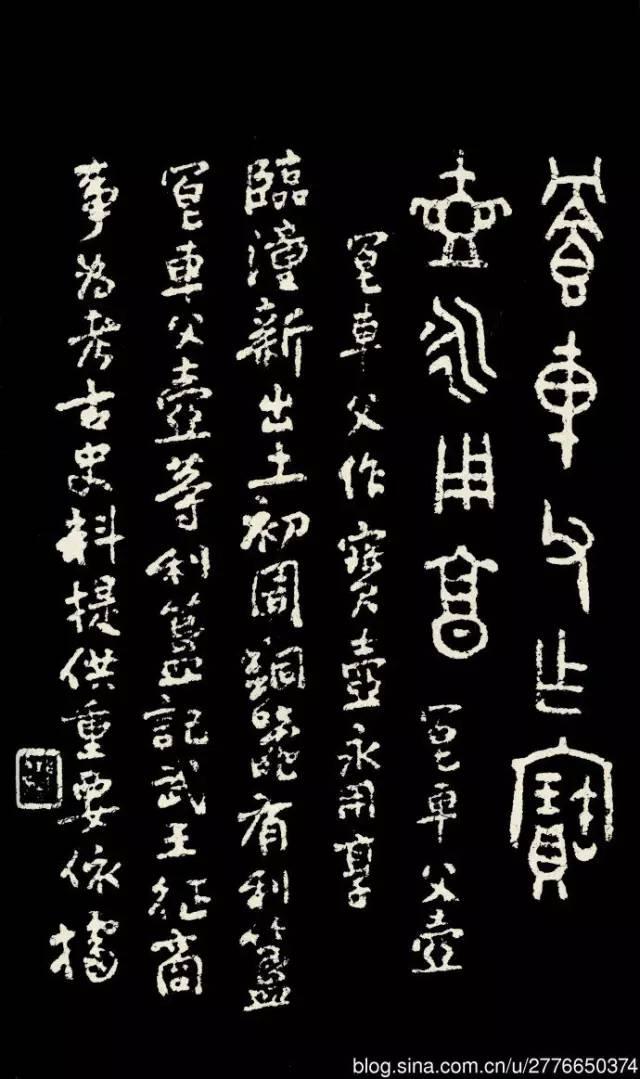 冟車父乍寶
壺永用享 冟車父壺
冟車父作寶壺永用享
臨潼新出土初周銅器有利簋
冟車父壺等利簋記武王征商
事為考古史料提供重要依據
blog.sina.com.cn/u/2776650374